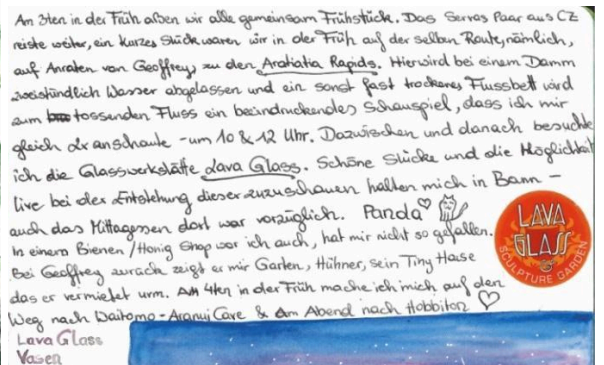 Am 3ten in der Früh aßen wir alle gemeinsam Frühstück. Das Servas Paar aus CZ
reiste weiter, ein kurzes Stück waren wir in der Früh auf der selben Route, nämlich,
auf Anraten von Geoffrey, zu den Aratiatia Rapids. Hier wird bei einem Damm
zweistündlich Wasser abgelassen und ein sonst fast trockenes Flussbett wird
zum tossenden Fluss ein beeindruckendes Schauspiel, dass ich mir
gleich 2x anschaute - um 10 & 12 Uhr. Dazwischen und danach besuchte
ich die Glasswerkstätte Lava Glass. Schöne Stücke und die Möglichkeit
live bei der Entstehung dieser zuzuschauen halten mich in Bann -
auch das Mittagessen dort war vorzüglich. Panda
In einem Bienen/Honig Shop war ich auch, hat mir nicht so gefallen.
Bei Geoffrey zurück zeigt er mir Garten, Hühner, sein Tiny House
das er vermietet usw. Am 4ten in der Früh mache ich mich auf den
Weg nach Waitomo - Aranui Cave & am Abend nach Hobbiton
LAVA
GLASS
SCULPTURE GARDEN
Lava Glass
Vasen